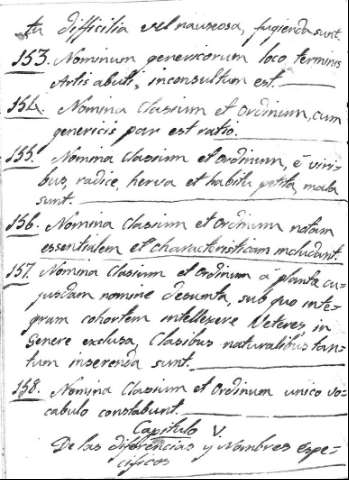 tu difficilia vel nauseosa, fugienda sunt.
153. Nominum genericorum loco terminis
Artis abuti, inconsultum est.
154. Nomina Classium et Ordinum, cum
genericis par est ratio.
155. Nomina Classium et Ordinum, e viri-
bus, radice, herva et habitu petita, mala
sunt.
156. Nomina Classium et Ordinum notam
essentialem et characteristicam includant.
157. Nomina Classium et Ordinum a planta cu-
jusdam nomine desumta, sub quo inte-
gram cohortem intellexere Veteres, in
Genere exclusa, Classibus naturalibus tan-
tum inserenda sunt.
158. Nomina Classium et Ordinum unico vo-
cabulo constabunt.
Capitulo V.
De las diferencias y Nombres Espe-
cificos